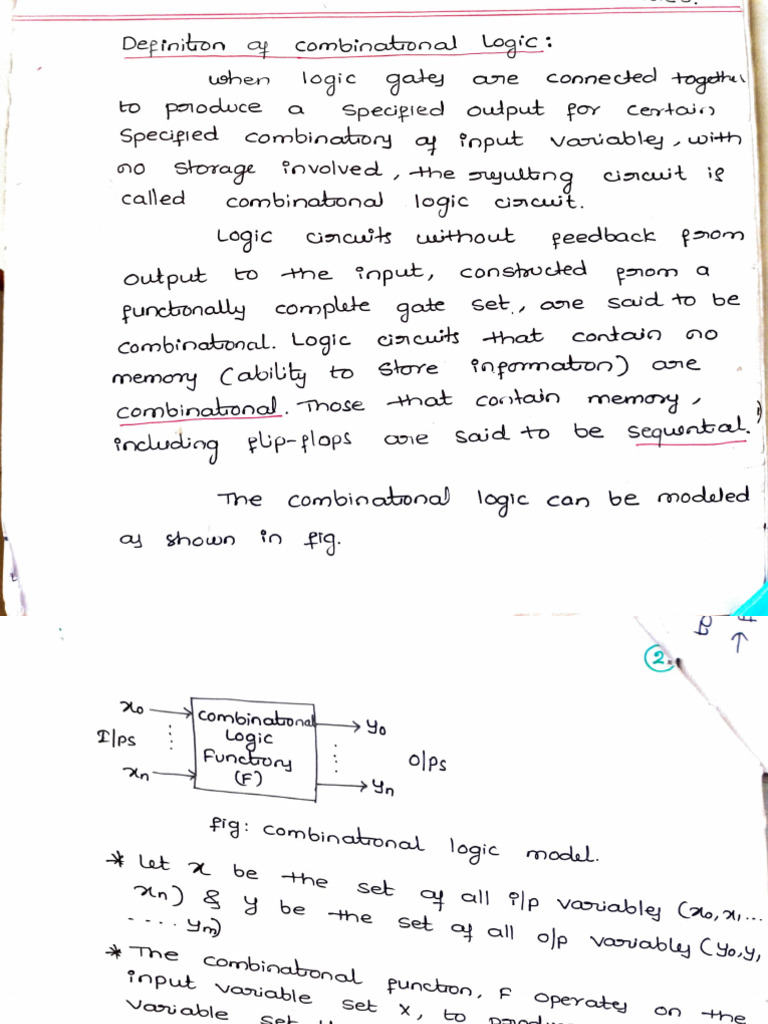 Definition of combinational Logic:
when logic gates are connected together
to produce a specified output for certain
specified combinations of input variables, with
no storage involved, the resulting circuit is
called combinational logic circuit.
Logic circuits without feedback from
output to the input, constructed from a
functionally complete gate set, are said to be
combinational. Logic circuits that contain no
memory (ability to store information) are
combinational. Those that contain memory,
including flip-flops are said to be sequential.
The combinational logic can be modeled
as shown in fig.
2.
x0
I/ps
xn
combinational
Logic
Functions
(F)
y0
O/ps
yn
fig: combinational logic model.
* Let x be the set of all i/p variables (x0, x1, ...
xn) & y be the set of all o/p variables (y0, y1
.... ym)
* The combinational function, F operates on the
input variable set x, to
variable set